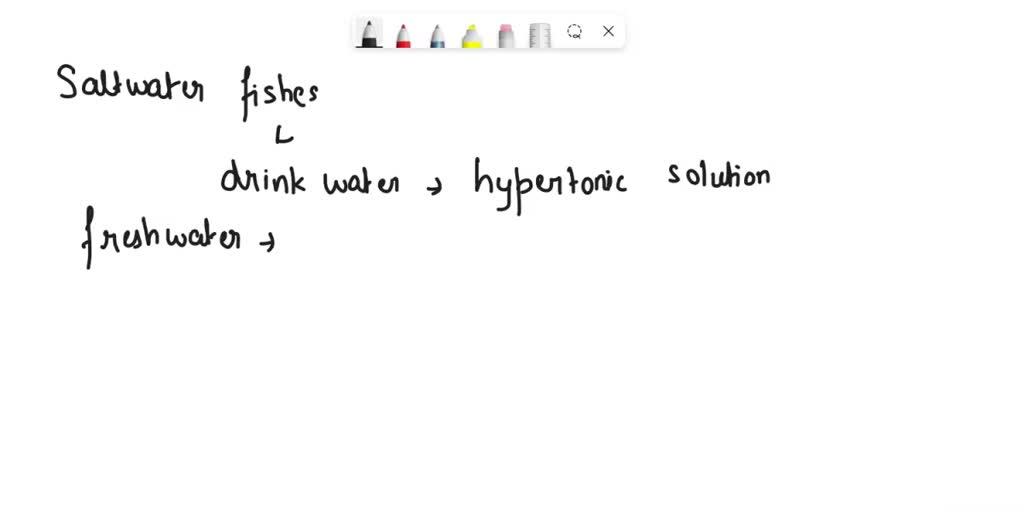 Saltwater fishes
drink water → hypertonic solution
freshwater →